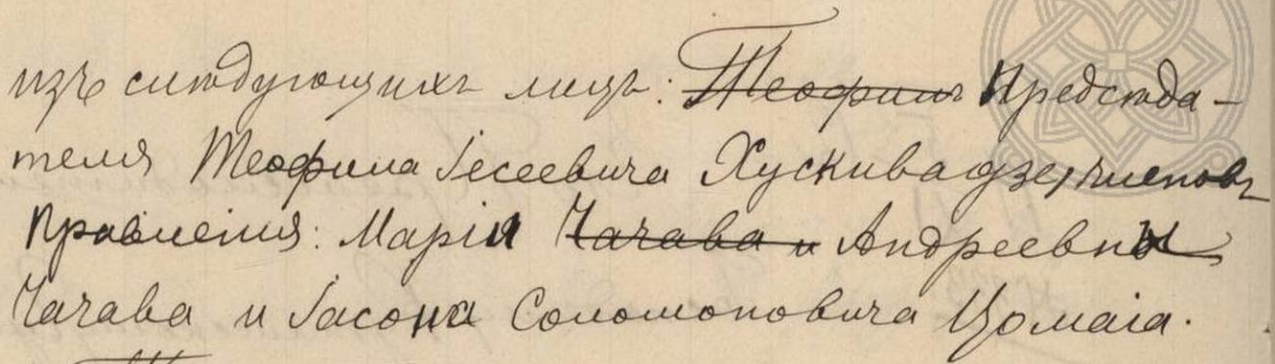 изъ слѣдующихъ лицъ: Теофилъ Предсѣда-
теля Теофила Іесеевича Хускивадзе, членовъ
Правленія: Маріи Чачава и Андреевны
Чачава и Іасона Соломоновича Цомаіа.